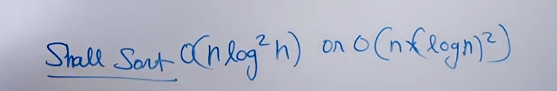 Shall Sort O(n log²n) or O(n*(logn)²)